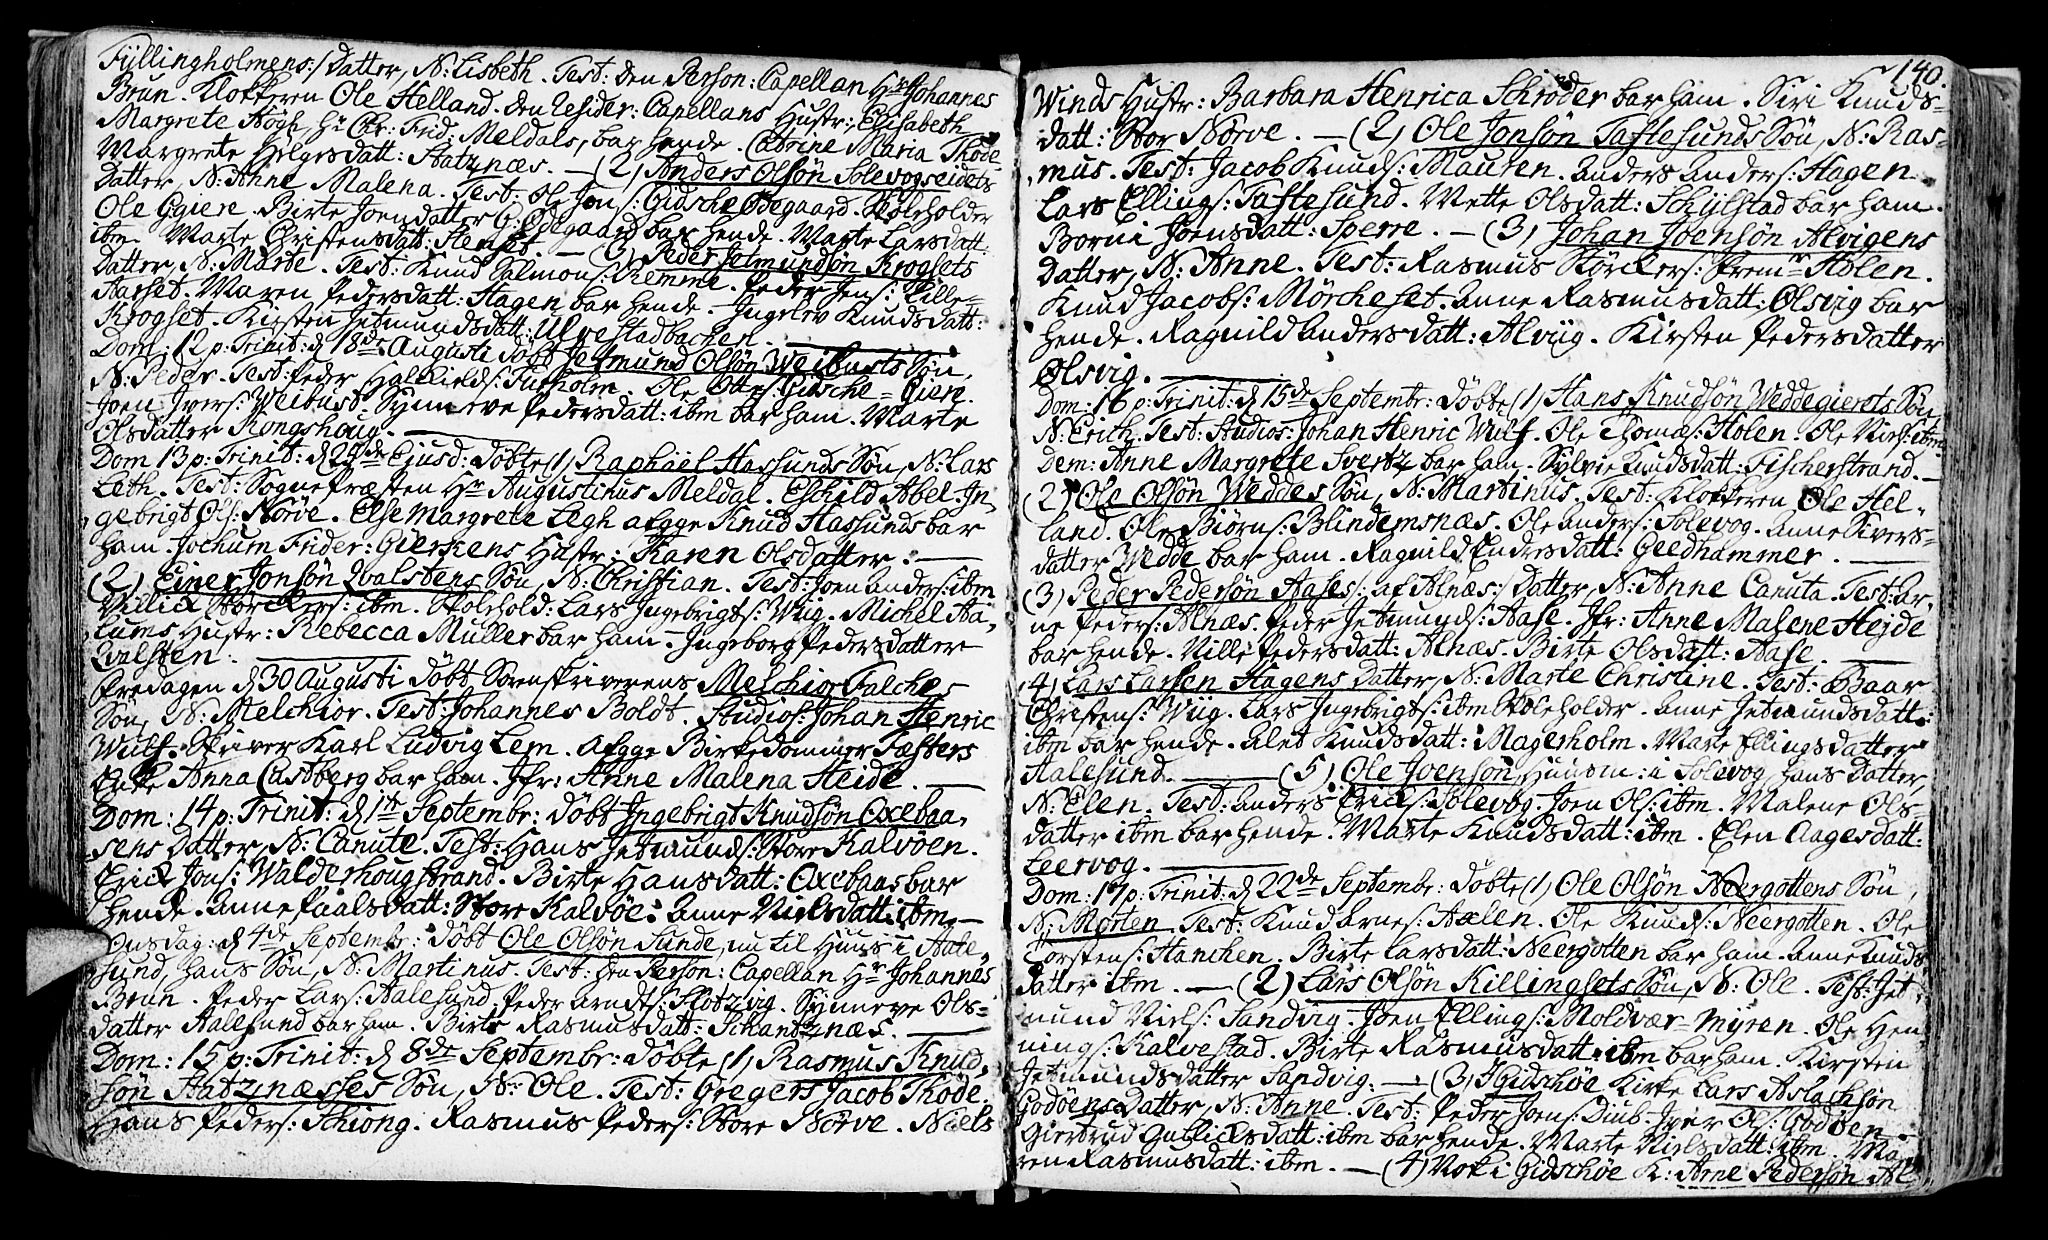 Füllingholmens:/ Datter, N: Lisbeth. Test: den Person: Capellan Hr Johannes
Brun. Klokkeren Ole Helland. den Resider: Capellans Hustr: Elisabeth
Margrete Høgh, Hr Chr: Frid: Meldals, bar hende. Catrine Maria Thode
Margrete Helgesdatt: Aatznæs. — (2) Anders Olsøn Solevogseidets
Datter, N: Anne Malena. Test: Ole Jons: Gidsche Ødegaard. Skoleholder
Ole Giere. Birte Joendatter G: Ødegaard bar hende. Marte Larsdatt:
ibm. Marte Christensdatt: — (3) Peder Jetmundsøn Krogsets
Datter, N: Marde. Test: Knud Salmons: Remme. Peder Jens: Lille-
Aarset. Maren Pedersdatt: Hagen bar hende. Ingelev Knudsdatt:
Krogset. Kirsten Jetmundsdatt: Ulvestadbacken. —
Dom: 12 p: Trinit: d 18de Augusti døbt Jetmund Olsøn Weibusts Søn,
N: Peder. Test: Peder Halkields: Furholm. Ole Ottes: Gidsche-Giere.
Joen Ivers: Weibust. Synneve Pedersdatt: ibm bar ham. Marte
Olsdatter Kongshoug. —
Dom 13 p: Trinit: d 25de Ejusd: døbte (1) Raphael Hassunds Søn, N: Lars
Leth. Test: SognePræsten Hr Augustinus Meldal. Eschild Abel. In-
gebrigt Ols: Nørve. Else Margrete Legh afgge Knud Hassunds bar
ham. Jochum Frider: Gierkens Hustr: Karen Olsdatter. —
(2) Einer Jonsøn Qvalstens Søn, N: Christian. Test: Joen Anders: ibm
Villix Størckers: ibm. Skolehold: Lars Ingebrigts: Wiig. Michel Aa-
lums Hustr: Rebecca Muller bar ham. Ingeborg Pedersdatter
Qvalsten. —
Fredagen d 30 Augusti døbt Sorenskriverens Melchior Falches
Søn, N: Melchior. Test: Johannes Boldt. Studios: Johan Henric
Wulf. Skriver Karl Ludvig Lem. Afgge Birkedommer Fæsters
Enke Anna Castberg bar ham. Jfr: Anne Malena Heide. —
Dom: 14 p: Trinit: d 1te Septembr: døbt Ingebrigt Knudsøn Oxebaa-
sens Datter, N: Canute. Test: Hans Jetmunds: Store Kalvøen.
Erick Jons: Walderhougstrand. Birte Hansdatt: Oxebaas bar
hende. Anne Paalsdatt: Store Kalvøe. Anne Nielsdatt: ibm. —
Onsdag: d 4de Septembr: døbt Ole Olsøn Sunde, nu til Huus i Aale-
sund, hans Søn, N: Martinus. Test: den Person: Capellan Hr Johannes
Brun. Peder Lars: Aalesund. Peder Arndts: Slotzvig. Synneve Ols-
datter Aalesund bar ham. Birte Rasmusdatt: Schantznæs. —
Dom: 15 p: Trinit: d 8de Septembr: døbte (1) Rasmus Knud-
søn Aatznæsses Søn, N: Ole. Test: Gregers Jacob Thode.
Hans Peders: Schiong. Rasmus Peders: Store Nørve. Niels
140
Winds Hustr: Barbara Henrica Schrøder bar ham. Siri Knuds-
datt: Stor Nørve. — (2) Ole Jonsøn Taftesunds Søn, N: Ras-
mus. Test: Jacob Knuds: Mauren. Anders Anders: Hagen
Lars Ellings: Taftesund. Mette Olsdatt: Schylstad bar ham.
Borni Joensdatt: Sperre. — (3) Johan Joensøn Alvigens
Datter, N: Anne. Test: Rasmus Størckers: Holen.
Knud Jacobs: Mørcheset. Anne Rasmusdatt: Olsvig bar
hende. Ragnild Andersdatt: Alviig. Kirsten Pedersdatter
Olsvig. —
Dom: 16 p: Trinit: d 15de Septembr: døbte (1) Hans Knudsøn Weddegierets Søn,
N: Erith. Test: Studios: Johan Henric Wulf. Ole Thomas: Holen. Ole Niels: ibm
Dem: Anne Margrete Svertz bar ham. Sylvie Knudsdatt: Fischerstrand. —
(2) Ole Olsøn Weddes Søn, N: Martinus. Test: Klokkeren Ole Hel-
land. Ole Biørns: Blindemsnæs. Ole Anders: Solevog. Anne Sivers-
datter Wedde bar ham. Ragnild Endersdatt: Geedhammer. —
(3) Peder Pedersøn Aases /: af Alnæs :/ Datter, N: Anne Canuta. Test: Ar-
ne Peders: Alnæs. Peder Jetmunds: Aase. Jfr: Anne Malene Hejde
bar hende. Nille Pedersdatt: Alnæs. Birte Olsdatt: Aase. —
(4) Lars Larsen Hagens Datter, N: Marte Christine. Test: Baar
Christens: Wiig. Lars Ingebrigts: ibm Skoleholder. Anne Jetmundsdatt:
ibm bar hende. Alet Knudsdatt: Magerholm. Marte Ellingsdatter
Aalesund. — (5) Ole Joensøn, Huusm: i Solevog, hans Datter,
N: Elen. Test: Anders Ericks: Solevog. Joen Ols: ibm. Malene Ols-
datter ibm bar hende. Marte Knudsdatt: ibm. Elen Aagesdatt:
Leervog. —
Dom: 17 p: Trinit: d 22de Septembr: døbte (1) Ole Olsøn Neergottens Søn,
N: Morten. Test: Knud Arnes: Axlen. Ole Knuds: Neergotten. Ole
Torstens: Hanchen. Birte Larsdatt: Neergotten bar ham. Anne Knuds
datter ibm. — (2) Lars Olsøn Killingsets Søn, N: Ole. Test: Jet-
mund Niels: Sandvig. Joen Ellings: Moldvær-Myren. Ole Hen-
nings: Kalvestad. Birte Rasmusdatt: ibm bar ham. Kirsten
Jetmundsdatter Sandvig. — (3) I Gidschøe Kirke Lars Aslachsøn
Godøens Datter, N: Anne. Test: Peder Joens: Diub. Iver Ols: Godøen.
Giertrud Gullicksdatt: ibm bar hende. Marte Nielsdatt: ibm. Ma-
ren Rasmusdatt: ibm. — (4) Nok i Gidschøe K: Arne Pedersøn Al-